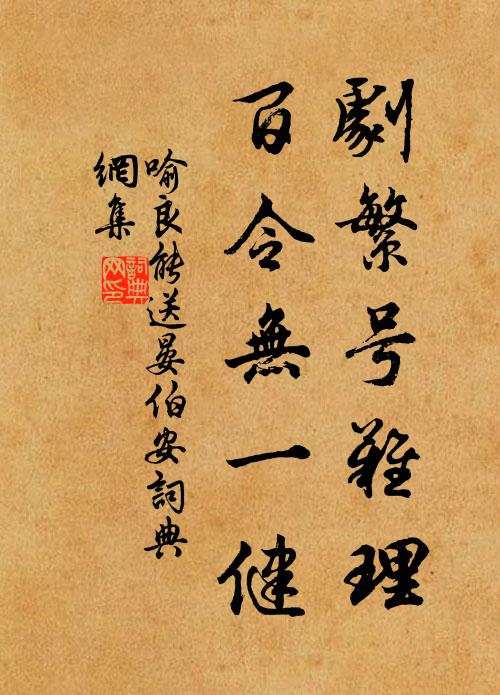 劇繁号難理
百令無一健
喻良能送晏伯安詞典
網集
詞典
网印